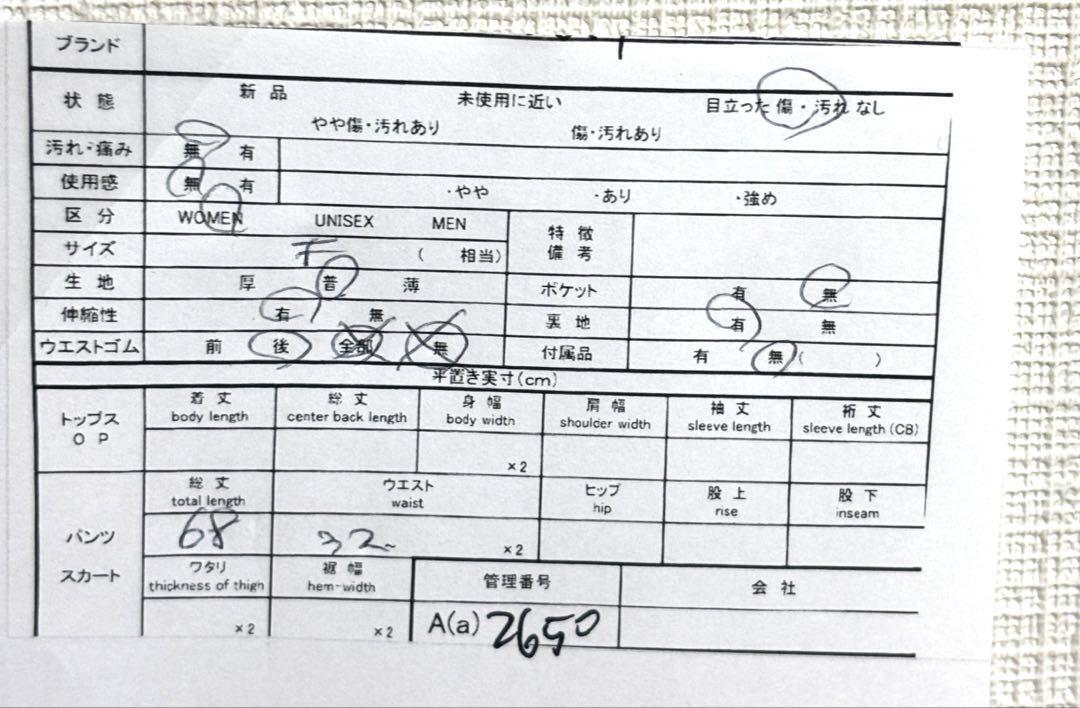 ブランド
状態 新品 未使用に近い 目立った傷・汚れなし
やや傷・汚れあり 傷・汚れあり
汚れ・痛み 無 有
使用感 無 有 ・やや ・あり ・強め
区分 WOMEN UNISEX MEN 特徴
備考
サイズ F ( 相当)
生地 厚 普 薄 ポケット 有 無
伸縮性 有 無 裏地 有 無
ウエストゴム 前 後 全部 無 付属品 有 無 ( )
平置き実寸(cm)
トップス
OP
着丈 総丈 身幅 肩幅 袖丈 裄丈
body length center back length body width shoulder width sleeve length sleeve length (CB)
×2
パンツ
スカート
総丈 ウエスト ヒップ 股上 股下
total length waist hip rise inseam
68 32 ×2
ワタリ 裾幅 管理番号 会社
thickness of thigh hem-width
×2 ×2 A(a) 2650